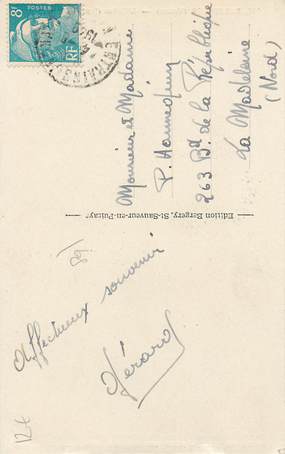 8F
POSTES
RF
Monsieur et Madame
P. Hennequin
263 Bd de la République
La Madeleine
(Nord)
Edition Bergery, St-Sauveur-en-Puisaye
89
Affectueux souvenir
Gérard
12€